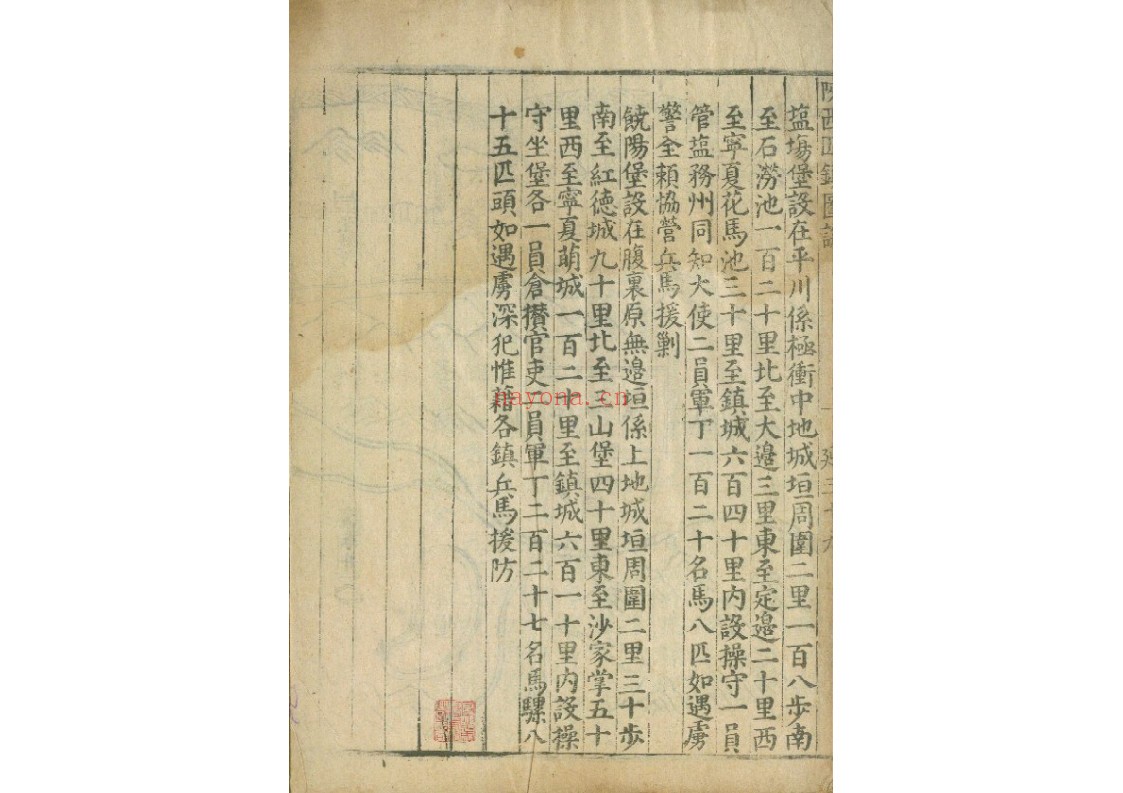 塩塲堡設在平川係極衝中地城垣周圍二里一百八步南
至石澇池一百二十里北至大邉三里東至定邉二十里西
至寧夏花馬池三十里至鎮城六百四十里内設操守一員
管塩務州同知大使二員軍丁一百二十名馬八匹如遇虜
警全頼協營兵馬援剿
饒陽堡設在腹裏原無邉垣係上地城垣周圍二里三十步
南至紅德城九十里北至三山堡四十里東至沙家掌五十
里西至寧夏萌城一百二十里至鎮城六百一十里内設操
守坐堡各一員倉攅官吏二員軍丁二百二十七名馬騾八
十五匹頭如遇虜深犯惟藉各鎮兵馬援防
nayona.cn